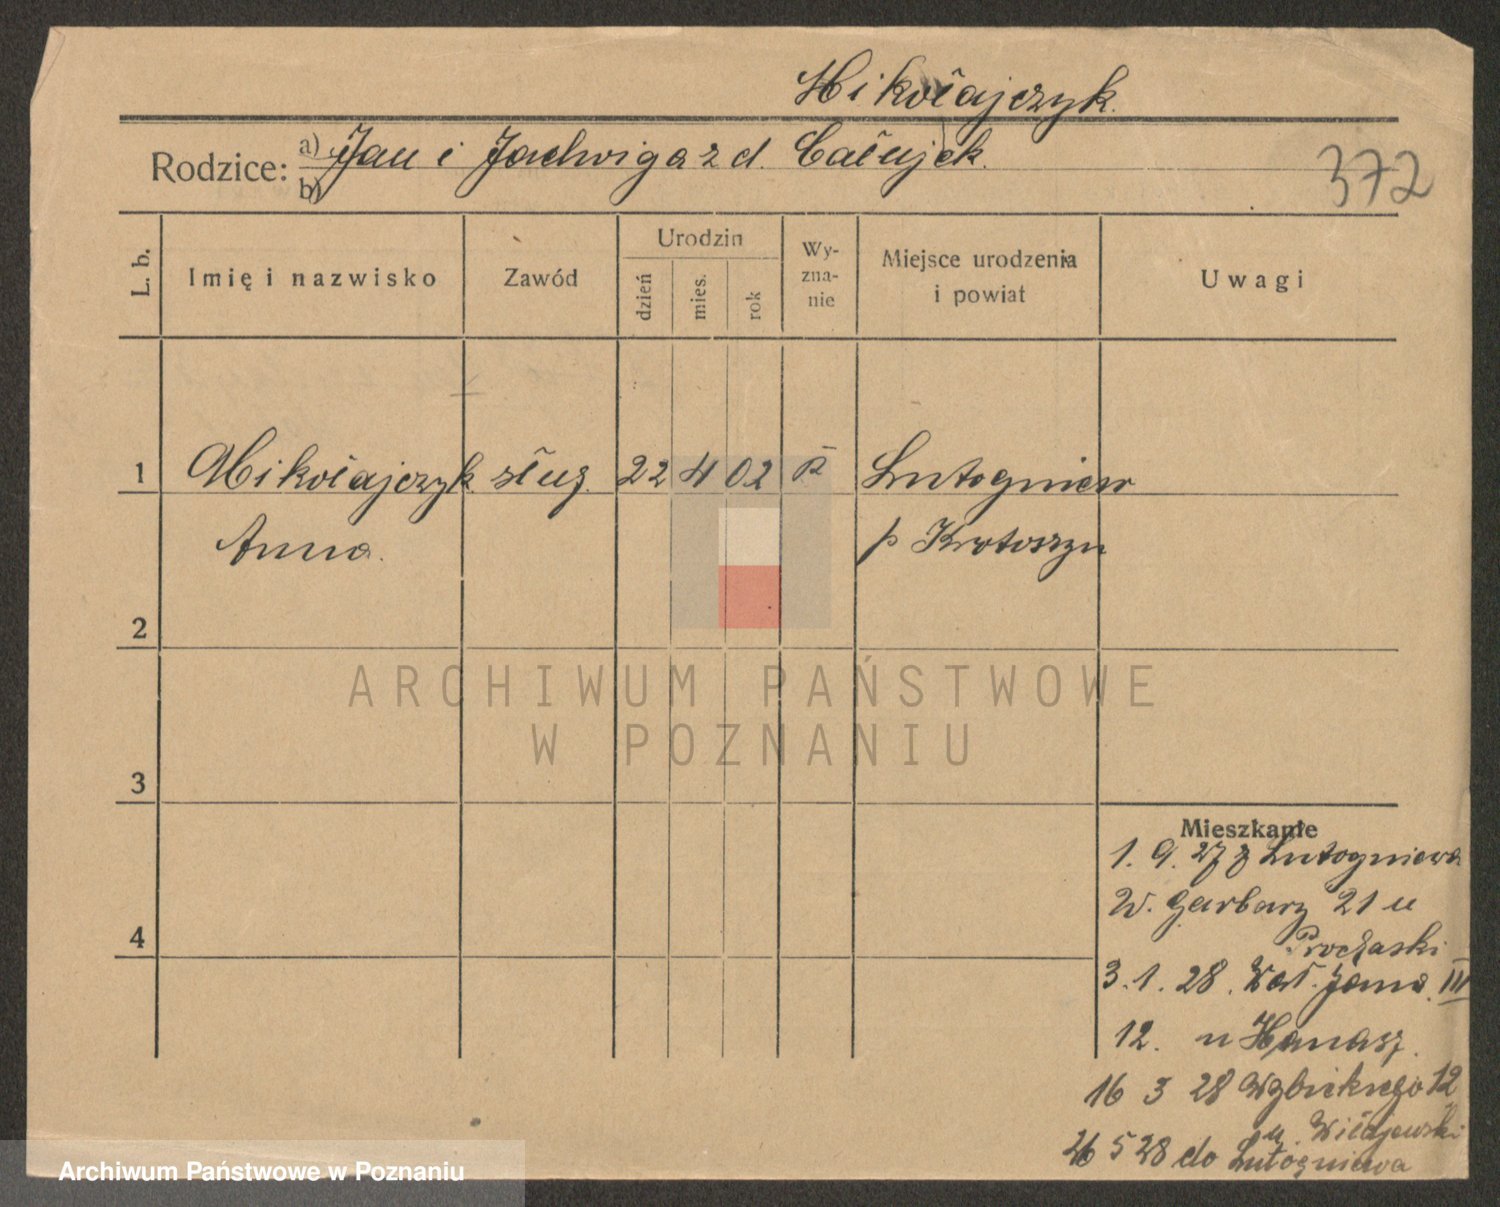 Mikołajczyk.
Rodzice: a) Jan i Jadwiga z d. Całujek.
b)
372
L. b.
Imię i nazwisko
Zawód
Urodzin
dzień
mies.
rok
Wy-
zna-
nie
Miejsce urodzenia
i powiat
Uwagi
1 Mikołajczyk służ. 22 4 02 Lutogniew
Anna. p Krotoszyn
2
3
4
Mieszkanie
1. 9. 27 z Lutogniewa
W. Garbary 21 u
3. 1. 28. Wał. Jana III
12. u Hanasz.
16 3 28 12
u.
26 5 28 do Lutogniewa
ARCHIWUM PAŃSTWOWE
W POZNANIU
Archiwum Państwowe w Poznaniu